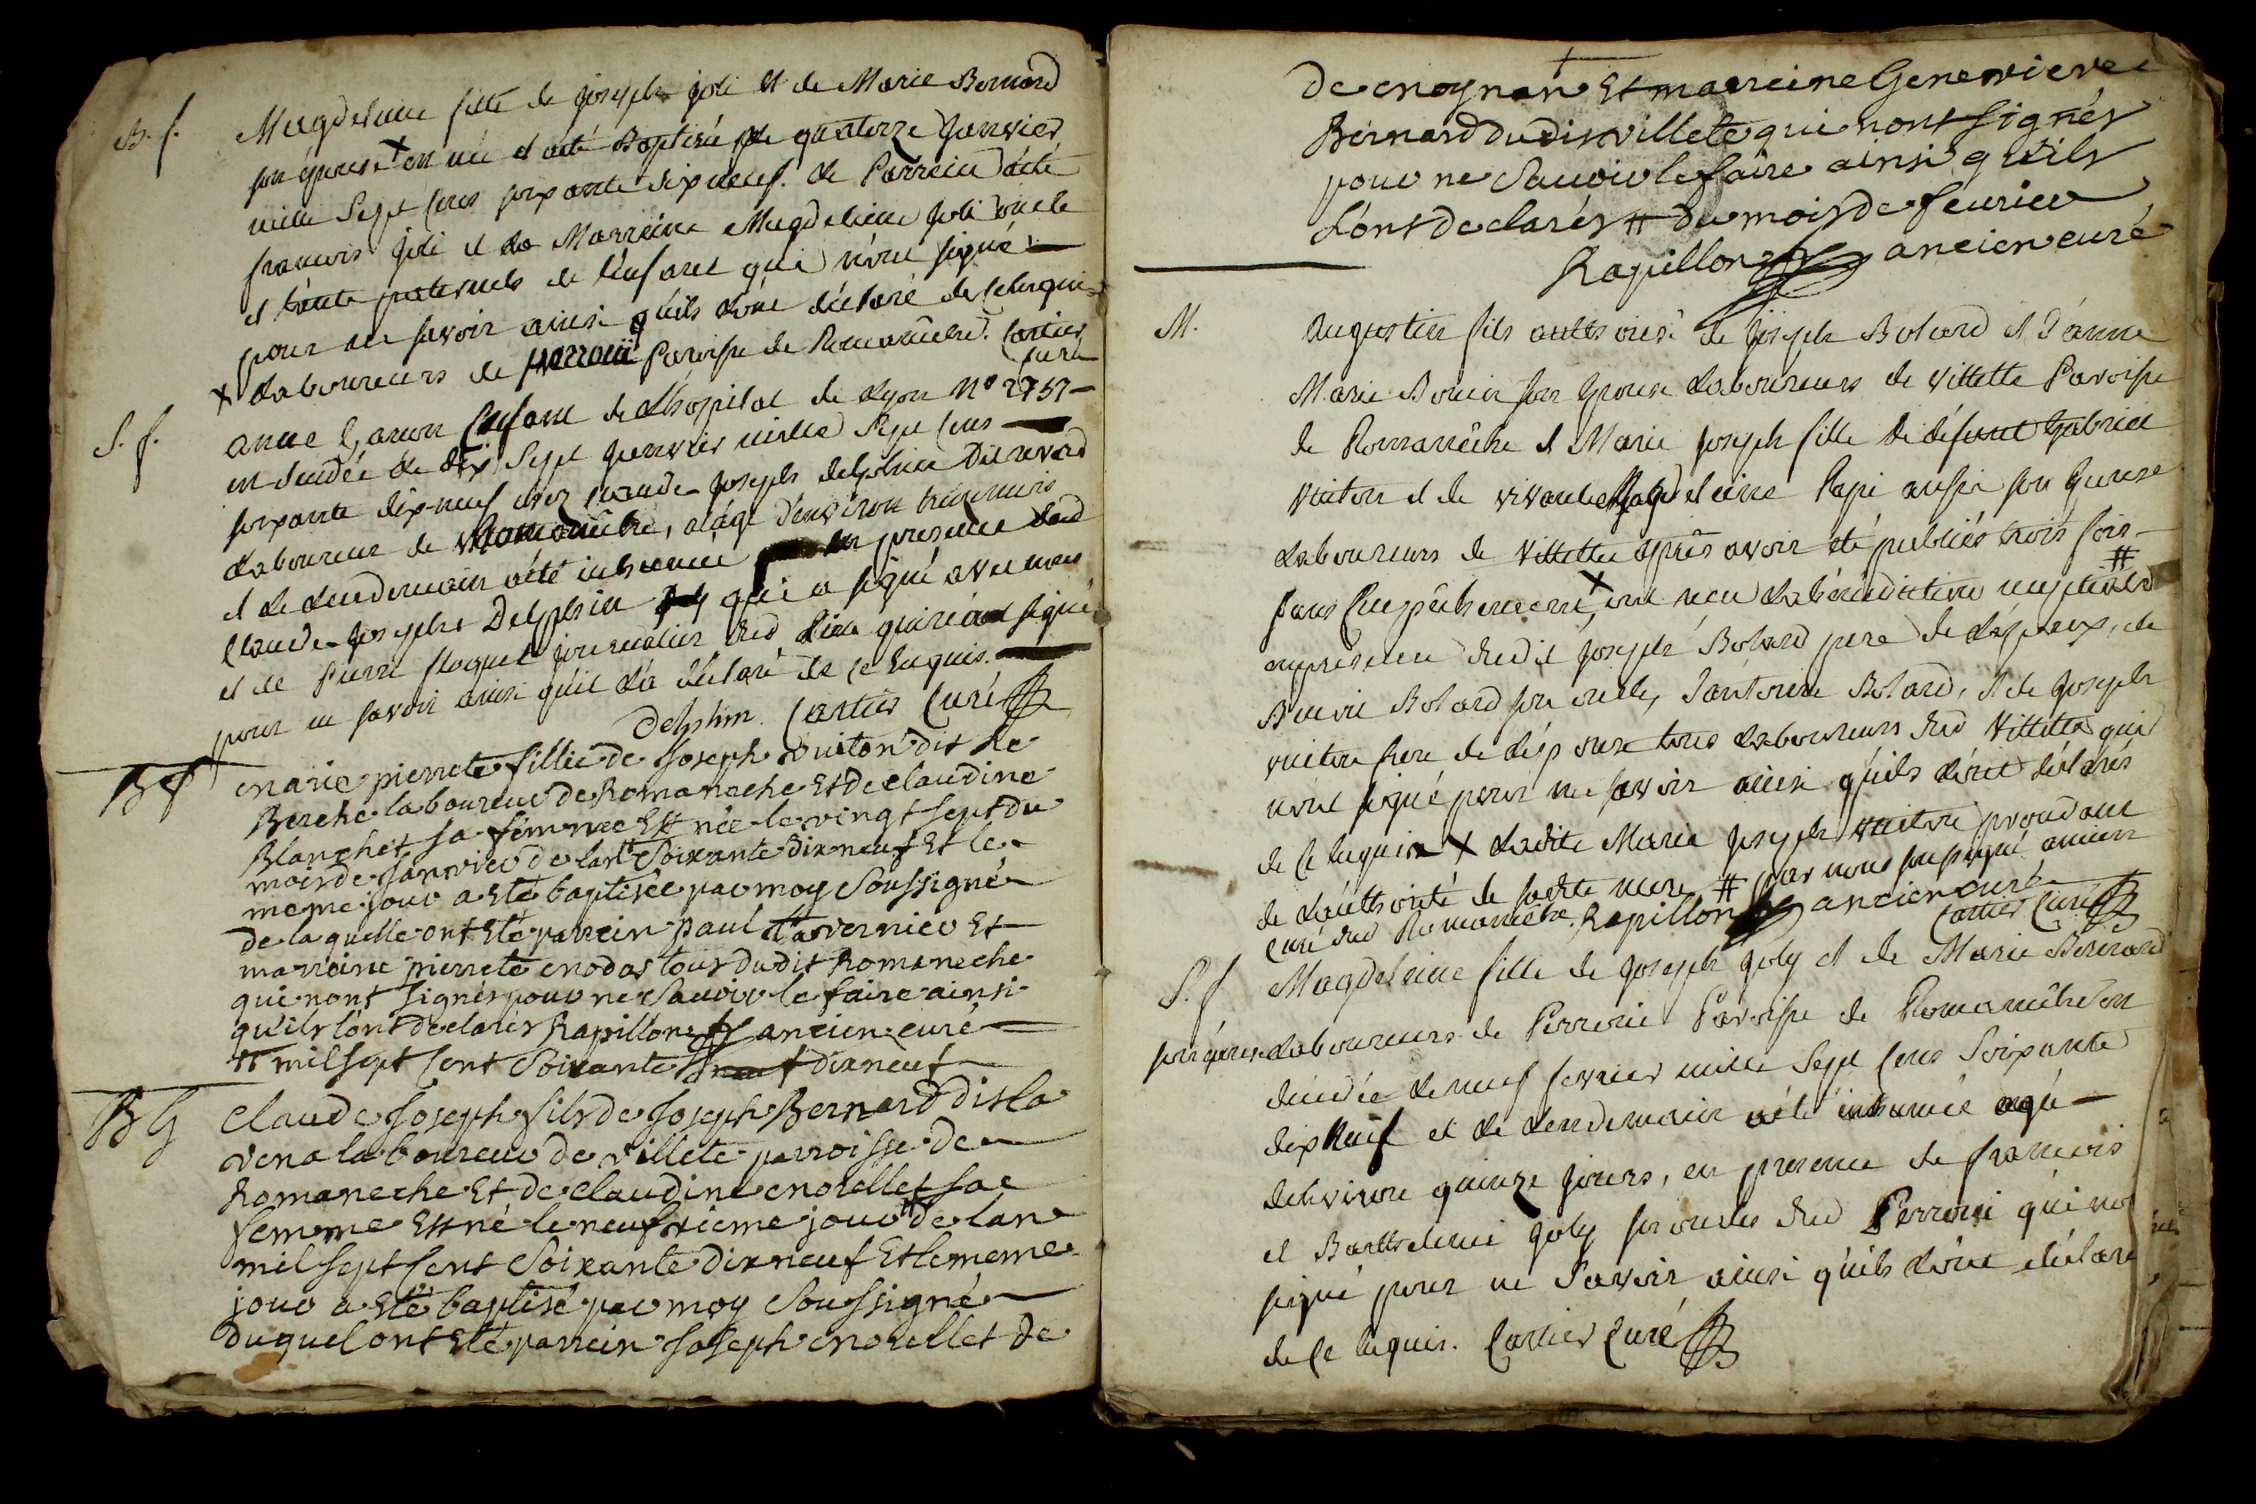 B. f. Magdelaine fille de joseph joli et de Marie Bernard
son épouse X en née et a été Baptisée le quatorze janvier
mille Sept Cens soixante dix neuf. le Parrein a été
francois joli et la Marreine Magdeleine joli oncle
et tante paternels de l'enfant qui n'ont signé
pour ne savoir ainsi qu'ils l'ont déclaré de ce enquis
X laboureurs de perroui Paroisse de Romanêche. Cartier
Curé
S. f. anne Enfant de l'hôpital de Lyon N° 2757
est decédée le dix Sept janvier mille Sept Cens
soixante dix-neuf chez Claude joseph delphin Dit
laboureur de Romanêche, agée d'environ trois mois
et le lendemain a été inhumée en presence dud
Claude-joseph Delphin qui a signé avec nous
et de Pierre journalier dud lieu qui n'a signé
pour ne savoir ainsi qu'il l'a déclaré de ce Enquis.
Delphin. Cartier Curé
B f marie pierrete fillie de Joseph vuiton dit le
Berche laboureur de Romaneche Et de claudine
Blanchet sa femme Est née le vingt sept du
mois de Janvier de lan # Soixante dix neuf Et le
meme jour a Eté baptisée par moy Soussigné
de laquelle ont Eté parrein paul tavernier Et
marreine pierrete tous dudit Romaneche
qui nont signés pour ne Sauoir le faire ainsi
quils lont declarés Rapillon ancien curé
# mil sept Cent Soixante dix neuf
B G claude Joseph fils de Joseph Bernard dit la
vena laboureur de villete parroisse de
Romaneche Et de claudine morellet sa
femme Est né le neufvieme jour # de lan
mil sept Cent Soixante dix neuf Et le meme
jour a Eté baptisé par moy Soussigné
duquel ont Eté parrein Joseph morellet de
de Et marreine Genevieve
Bernard dudit villete qui nont signés
pour ne Sauoir le faire ainsi quils
Lont declarés # du mois de feurier
Rapillon ancien curé
M. augustin fils authorisé de joseph Bolard et d'anne
Marie Bouin son Epouse laboureurs de villette Paroisse
de Romanêche et Marie joseph fille de défunt Gabriel
vuiton et de vivante Magdeleine Papi aussi son Epouse
laboureurs de villette après avoir été publiés trois fois
sans Empêchement X ont recu la bénédiction nuptiale #
en presence dudit joseph Bolard pere de l'époux, de
Bolard son oncle, d'antoine Bolard, et de joseph
vuiton frere de l'épouse tous laboureurs dud villette qui
n'ont signé pour ne savoir ainsi qu'ils l'ont déclarés
de ce enquis X ladite Marie joseph vuiton procedant
de l'authorité de sadite mere # par nous soussigné ancien
curé dud Romanêche. Rapillon ancien curé
Cartier Curé
S. f Magdeleine fille de joseph joly et de Marie Bernard
son épouse laboureurs de Perroui Paroisse de Romanêche est
decedée le neuf fevrier mille Sept Cens Soixante
dix Neuf et le lendemain a été inhumée agée
d'environ quinze jours, en presence de francois
et Barthelemi joly ses oncles dud Perroui qui n'ont
signé pour ne Savoir ainsi qu'ils l'ont déclaré
de ce Enquis. Cartier Curé